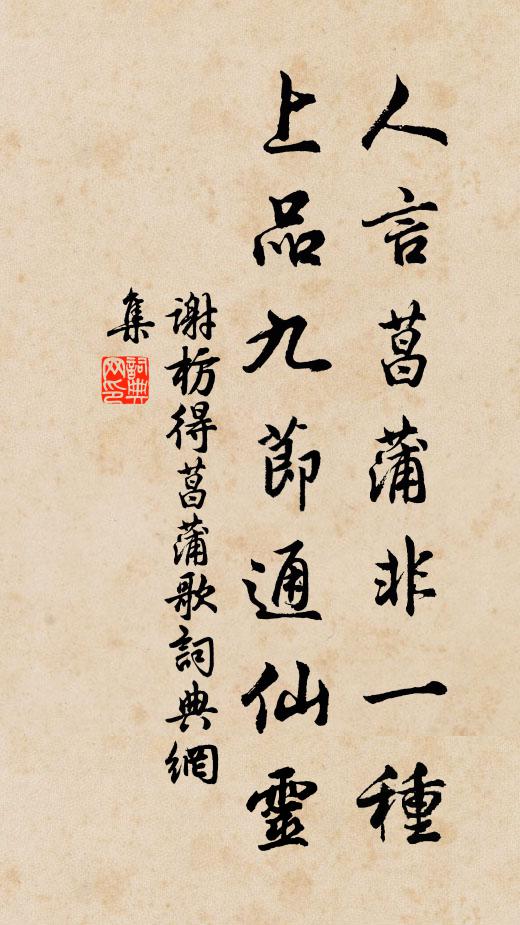 人言菖蒲非一種
上品九節通仙靈
謝枋得菖蒲歌詞典網
集
詞典网印